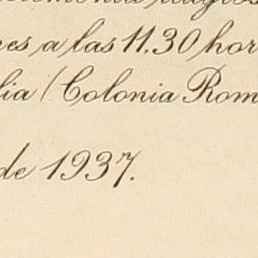 es a las 11.30 hor
lia (Colonia Rom
de 1937.